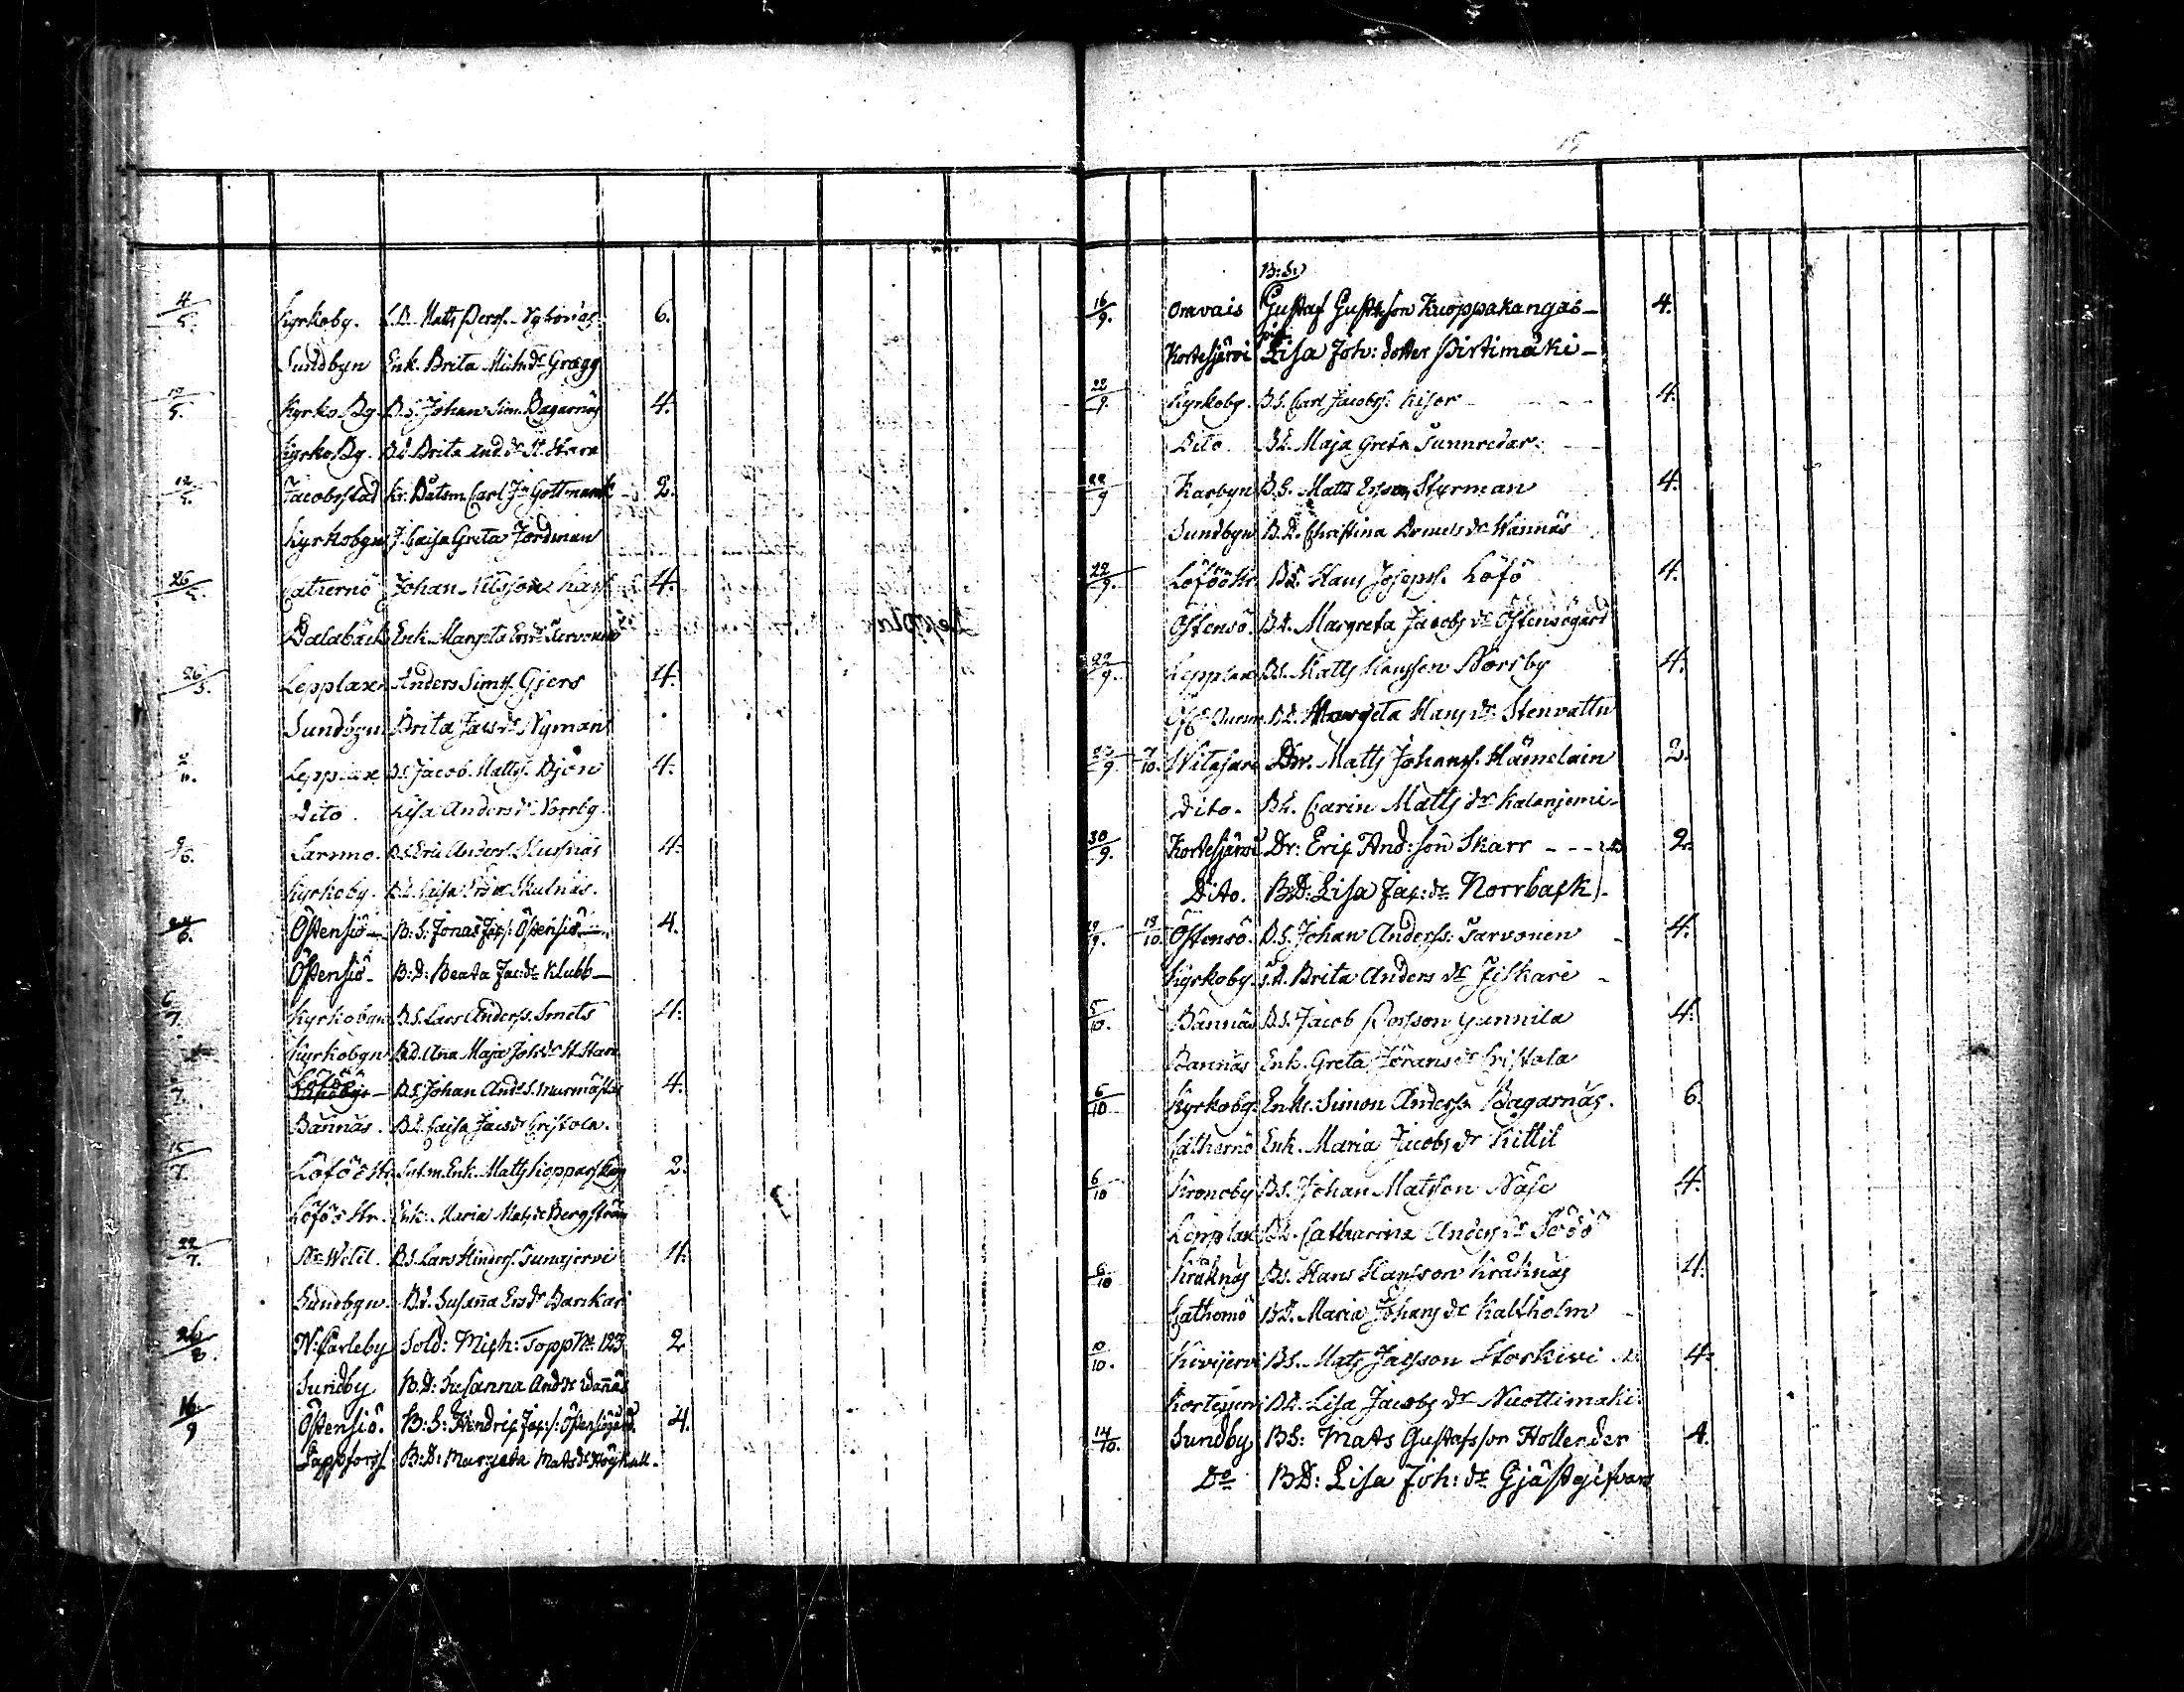 4/5. Kyrkoby. Matts Perss. Nybonäs. 6.
Sundbyn Enk. Brita Mich. dr Grægg
12/5. Kyrko By. B.S. Johan Sim. Bagarnäs 4.
Kyrko By. B.d. Brita And. dr St. Stara
12/5. Jacobstad Kr. Båtsm. Carl Gottmans 2.
Kyrkobyn P. Caisa Greta Jordman
26/5. Caternö Johan Nilsson 4.
Dalabäck Enk. Margeta Ers dr Tarvonen
26/5. Lepplaxn Anders Sims. Gjers 4.
Sundbyn Brita Jacs dr Nyman
Lepplax B.S. Jacob Matts. Björn 4.
Dito. Lisa Anders dr Norrby.
Larsmo. B.S. Eric Anders. 4.
Kyrkoby. B.d. Caisa
24/6. Östensiö B:S: Jonas Jacs: Östensiö 4.
Östensiö B:D: Beata Jac: dr Klubb
6/7. Kyrkobyn B.S. Lars Anderss. Smets 4.
Kyrkobyn B.d. Ana Maja Joh dr St. Stara
7. B.S. Johan And. S. Murmästar 4.
Bännäs. B.d. Caisa Jacs dr Cristola.
15/7. Löföstr. Enk. Matts 2.
Löföstr. Enk. Maria Mats dr Bergström
22/7. Nr Wetil. B.S. Lars Hinders. Tunajervi 4.
Sundbyn. B.d. Susaña Ers dr Barckar
26/8. N: Carleby Sold: Mich: Topp No 123 2
Sundby B.D: Susanna And dr Wañäs
16/9 Östensiö. B:S: Hendric Jac: s: Östensiögård. 4.
Pappfors B:D: Margeta Mats dr Högkull.
B:S:
16/9. Oravais Gustaf Gustfson Kuoppakangas 4.
Kortesjärvi Lisa Joh: dotter Pirtimäki
22/9. Kyrkoby. B.S. Carl Jacobs. Kiser 4.
Dito. B.d. Maja Greta Tunnredar.
22/9 Karbyn B.S. Matts Erson Styrman 4.
Sundbyn B.D. Christina Daniels dr Wannäs
22/9. Löföström B.S. Hans Joseps. Löfö 4.
Östensö. B.d. Margreta Jacobs dr Östensögård
22/9. Lepplax B.S. Matts Hansson Norrby 4.
B.d. Margeta Hans dr Stenvattn
9. 7/10. Witasari Dr. Matts Johans. Hämelain 2.
Dito. B.d. Carin Matts dr Kalanjemi
30/9. Kortesjärvi Dr: Eric And: son Skarr 2.
Dito. B.D: Lisa Jac: dr Norrback
19/9. 18/10. Östensö. B.S. Johan Anderss: Tarvonen 4.
Kyrkoby. B.d. Brita Anders dr Fiskari
5/10. Bännäs B.S. Jacob Persson Gunnila 4.
Bannäs Enk. Greta Jörans dr Cristola
6/10 Kyrkoby. Enkl. Simon Anderss. Bagarnäs. 6.
Catharnö Enk. Maria Jacobs dr Kittil
6/10 Kronoby B.S. Johan Matsson Näse 4.
Lepplax B.d. Catharina Anders dr
6/10 Kråknäs B.S. Hans Hansson Kråknäs 4.
Cathernö B.D. Maria Johans dr Kaltholm
10/10. Kivijervi B.S. Mats Jacsson Storkivi 4.
Kortejervi B.d. Lisa Jacobs dr Nuottimäki
14/10. Sundby B.S: Mats Gustafsson Hollender 4.
Do B.D: Lisa Joh: dr Gjästgifvars